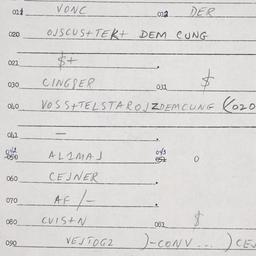 011 VONC 012 DER
020 OJSCUS+TEK+ DEM CUNG
021 $+
030 CINGSER 031 $
040 VOSS+TELSTAROJZDEMCUNG (020
041 —
042 050 AL1MAJ 043 051 0
060 CEJNER
070 AF /-
080 CVIS+N 081 $
090 VEJTOG2 )-CONV ... ) CEJ